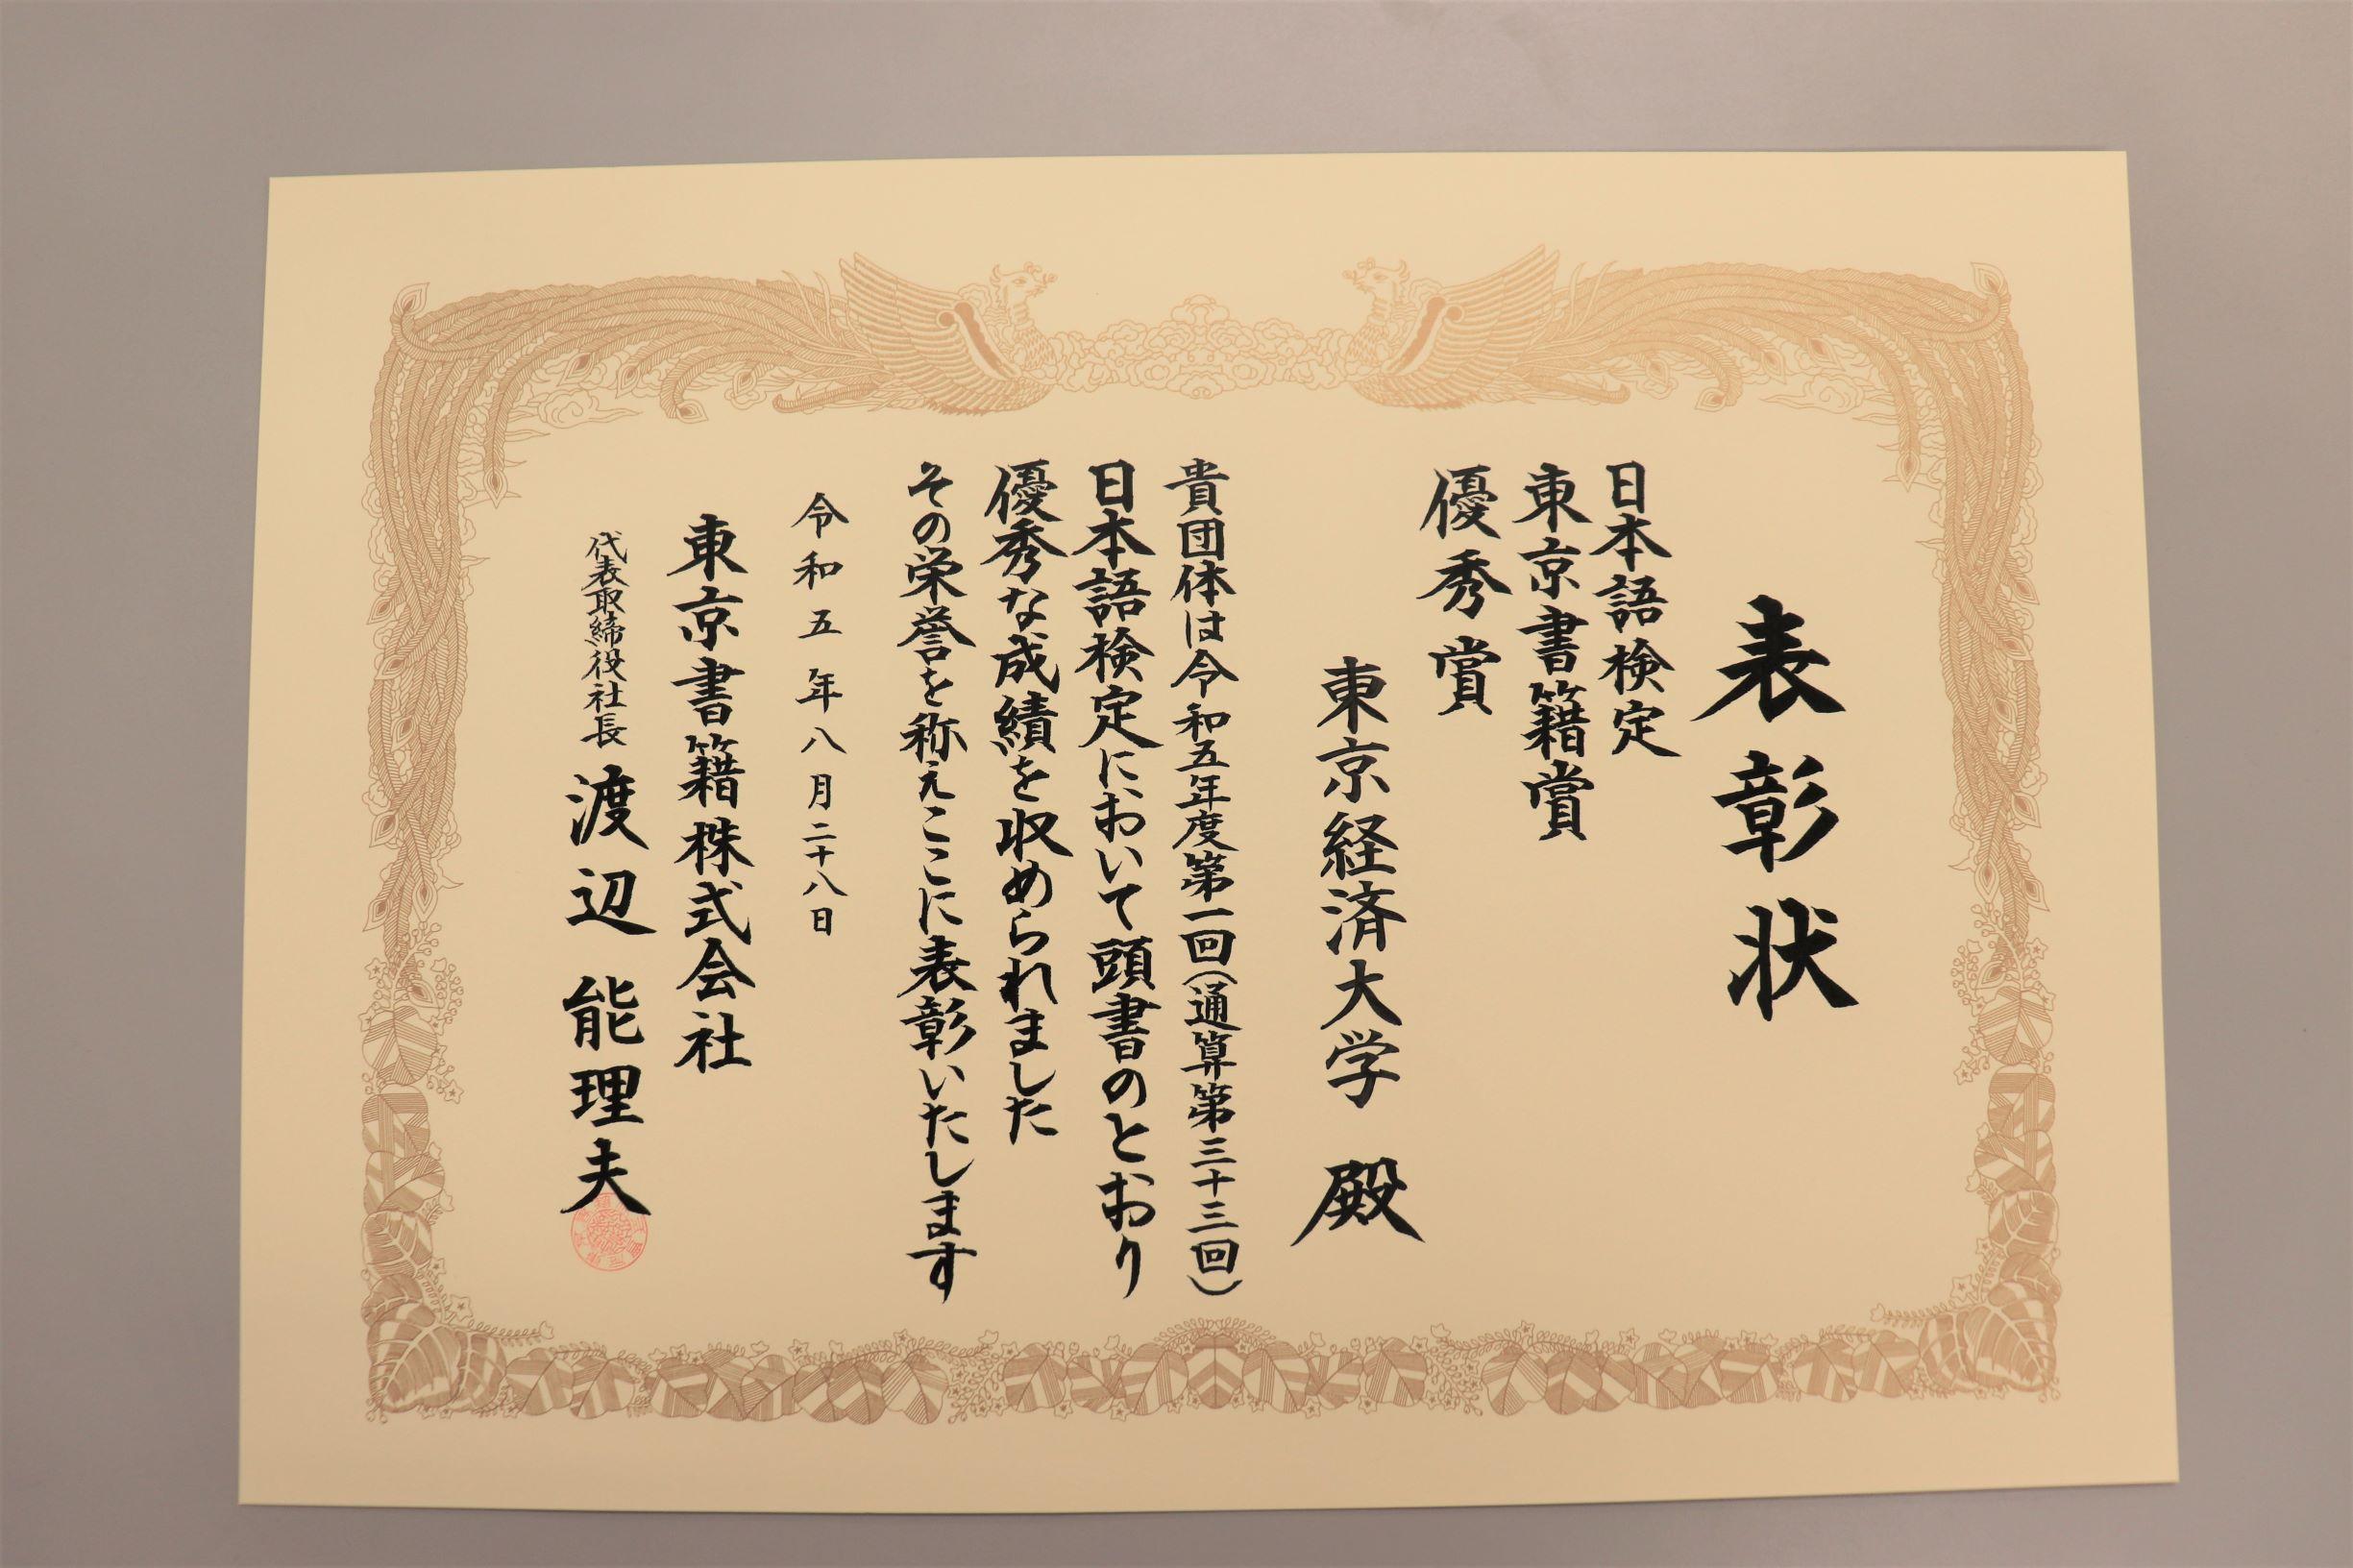 表彰状
日本語検定
東京書籍賞
優秀賞
東京経済大学 殿
貴団体は令和五年度第一回(通算第三十三回)
日本語検定において頭書のとおり
優秀な成績を収められました
その栄誉を称えここに表彰いたします
令和五年八月二十八日
東京書籍株式会社
代表取締役社長 渡辺能理夫